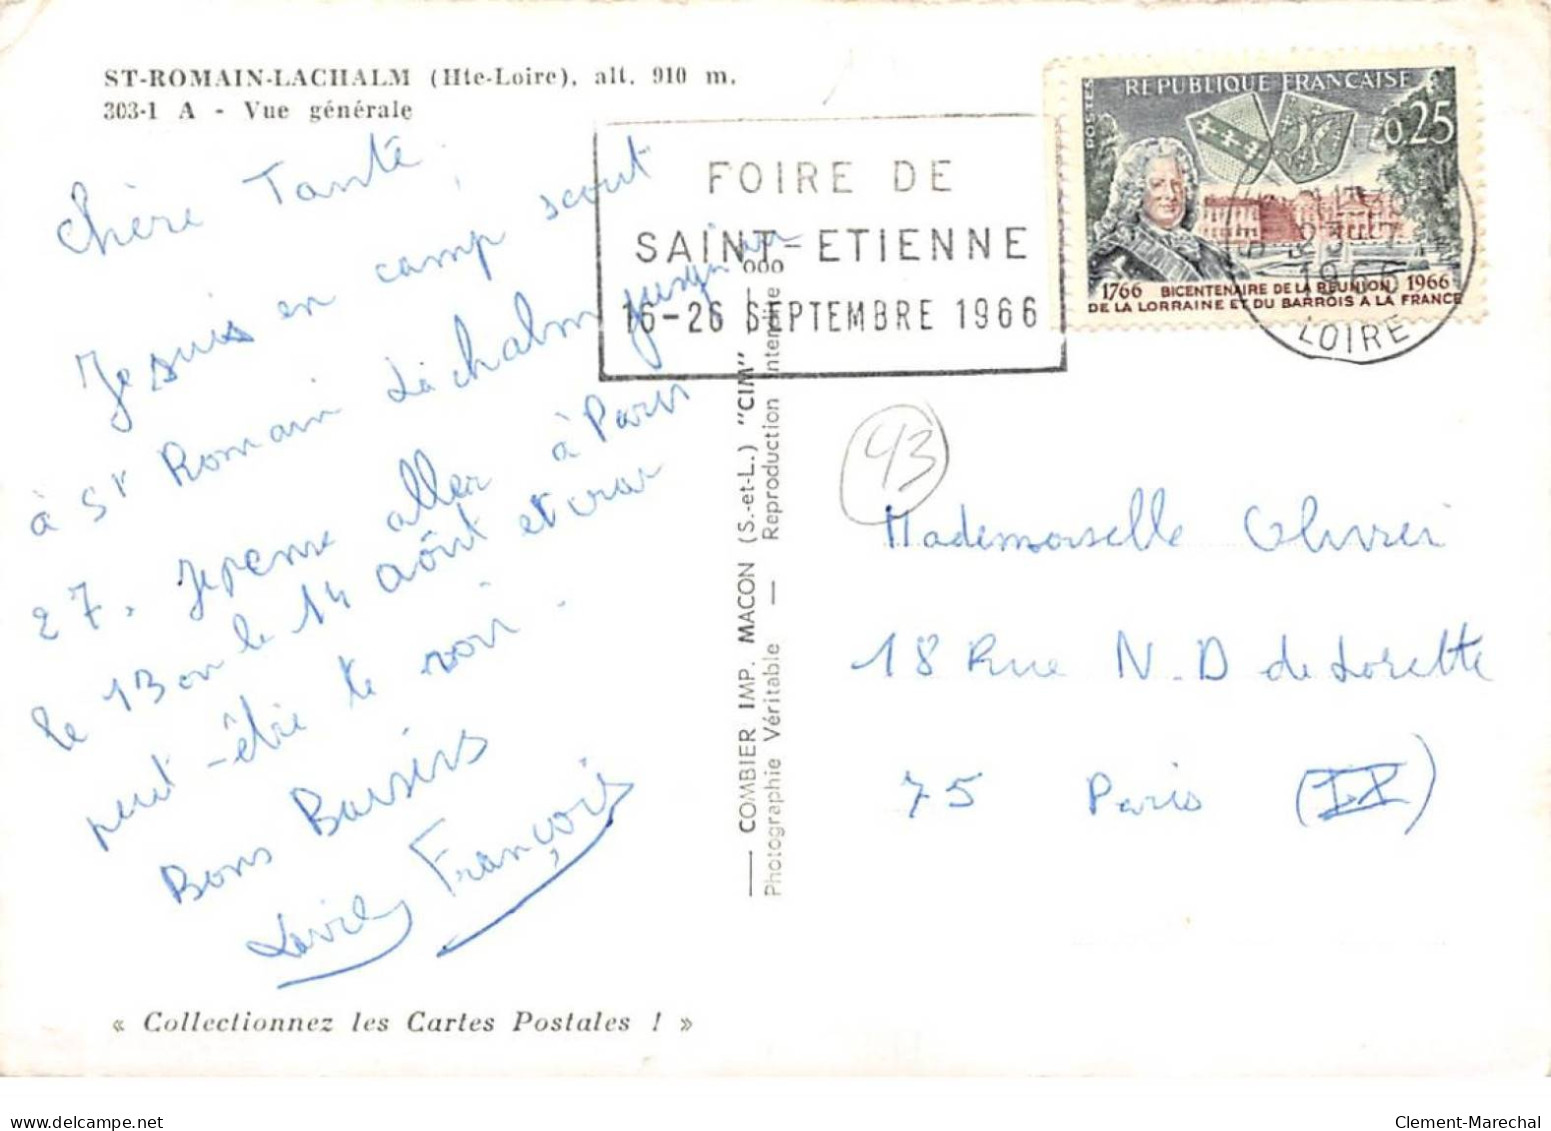 ST-ROMAIN-LACHALM (Hte-Loire), alt. 910 m.
303-1 A - Vue générale
Chère Tante,
Je suis en camp scout
à St Romain Lachalm jusqu'au
27. Je pense aller à Paris
le 13 ou le 14 août et
peut-être te voir.
Bons Baisers
François
« Collectionnez les Cartes Postales ! »
COMBIER IMP. MACON (S.-et-L.) "CIM"
Photographie Véritable — Reproduction Interdite
FOIRE DE
SAINT-ETIENNE
16-26 SEPTEMBRE 1966
POSTES
REPUBLIQUE FRANÇAISE
0,25
1766 BICENTENAIRE DE LA REUNION 1966
DE LA LORRAINE ET DU BARROIS A LA FRANCE
1966
LOIRE
43
Mademoiselle Olivier
18 Rue N. D de Lorette
75 Paris (IX)
Clement-Marechal